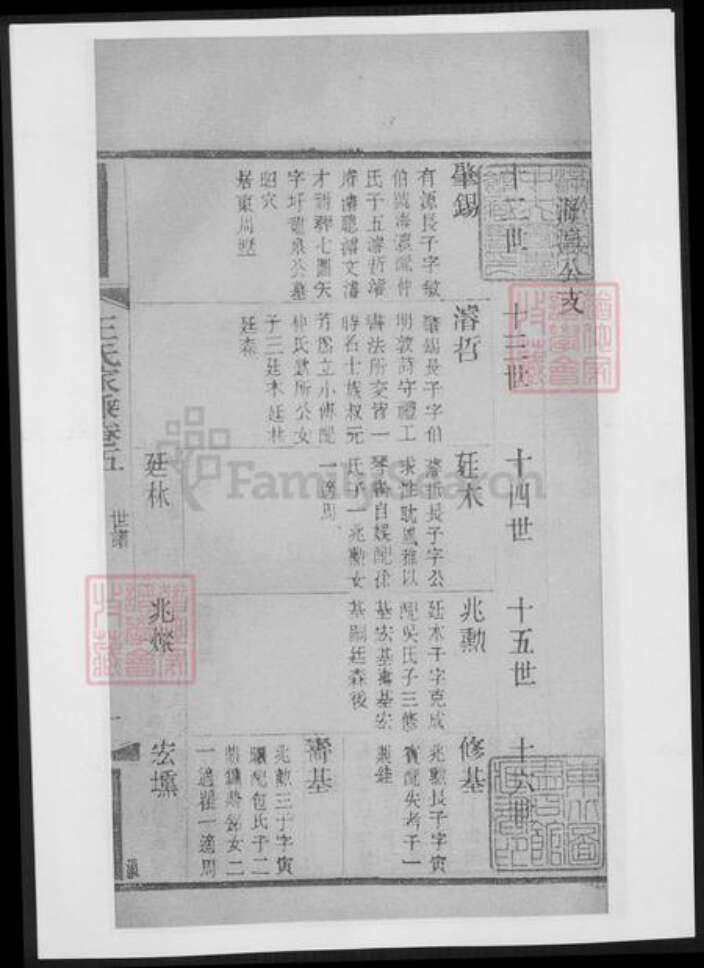 海瀛公支
十二世
肇錫
有源長子字敏
伯號海瀛配仲
氏子五濬哲濬
濬聰濬文濬
才 聯七圖矢
字圩龍泉公墓
昭穴
居東周墅
十三世
濬哲
肇錫長子字伯
明敦詩守禮工
書法所交皆一
時名士族叔元
芳為立小傳配
仲氏 所公女
子三廷木廷林
廷森
十四世
廷木
濬哲長子字公
求性耽風雅以
琴書自娛配徐
氏子一兆勳女
一適周
廷林
十五世
兆勳
廷木子字克成
配吳氏子三修
基宏基壽基宏
基嗣廷森後
兆燦
十六世
修基
兆勳長子字寅
賓配失考子一
壽基
兆勳三子字寅
颺配包氏子二
女二
一適瞿一適周
宏壎
王氏家乘卷五
世譜
FamilySearch